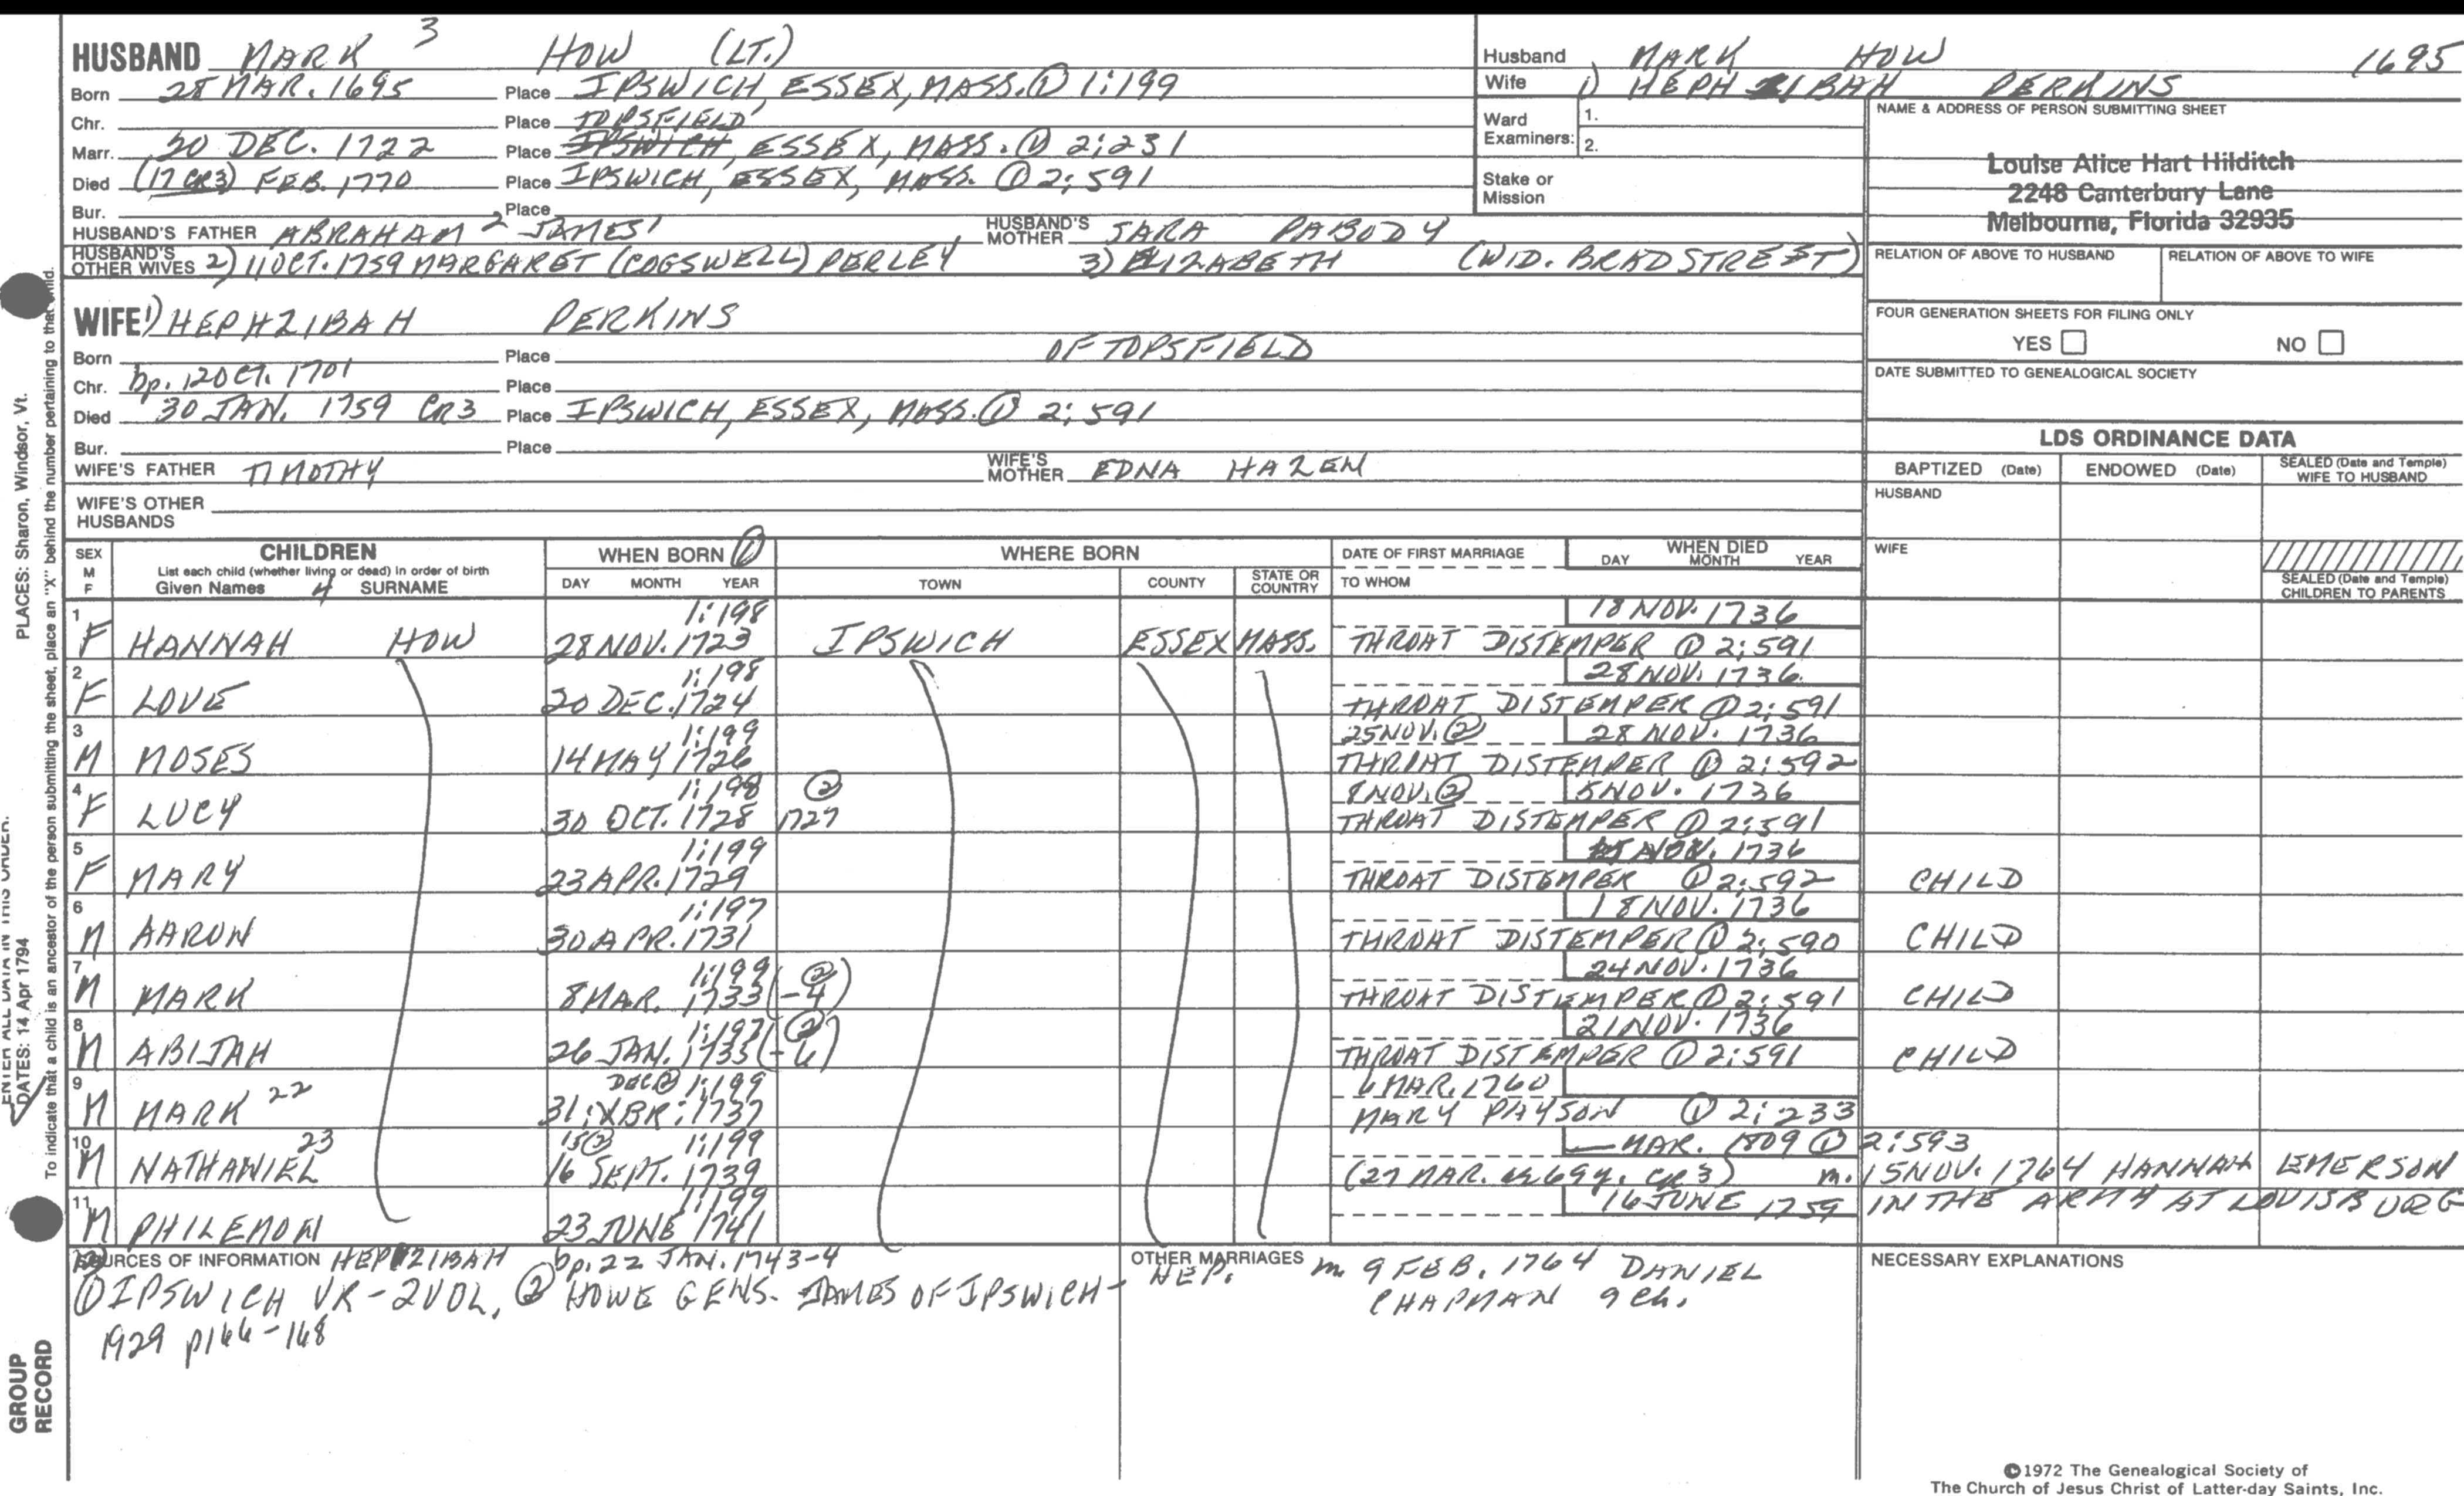 HUSBAND MARK 3 HOW (LT.)
Born 28 MAR. 1695 Place IPSWICH, ESSEX, MASS. ① 1:199
Chr. Place TOPSFIELD
Marr. 20 DEC. 1722 Place IPSWICH, ESSEX, MASS. ① 2:231
Died (17 CR3) FEB. 1770 Place IPSWICH, ESSEX, MASS. ① 2:591
Bur. Place
HUSBAND'S FATHER ABRAHAM 2 JAMES 1 HUSBAND'S MOTHER SARA PABODY
HUSBAND'S OTHER WIVES 2) 11 OCT. 1759 MARGARET (COGSWELL) PERLEY 3) ELIZABETH (WID. BRADSTREET)
WIFE 1) HEPHZIBAH PERKINS
Born Place OF TOPSFIELD
Chr. bp. 12 OCT. 1701 Place
Died 30 JAN. 1759 CR3 Place IPSWICH, ESSEX, MASS. ① 2:591
Bur. Place
WIFE'S FATHER TIMOTHY WIFE'S MOTHER EDNA HAZEN
WIFE'S OTHER HUSBANDS
Husband MARK HOW 1695
Wife 1) HEPHZIBAH PERKINS
Ward Examiners: 1.
2.
Stake or Mission
NAME & ADDRESS OF PERSON SUBMITTING SHEET
Louise Alice Hart Hilditch
2248 Canterbury Lane
Melbourne, Florida 32935
RELATION OF ABOVE TO HUSBAND RELATION OF ABOVE TO WIFE
FOUR GENERATION SHEETS FOR FILING ONLY
YES NO
DATE SUBMITTED TO GENEALOGICAL SOCIETY
LDS ORDINANCE DATA
BAPTIZED (Date) ENDOWED (Date) SEALED (Date and Temple) WIFE TO HUSBAND
HUSBAND
WIFE
SEALED (Date and Temple) CHILDREN TO PARENTS
SEX M F
CHILDREN
List each child (whether living or dead) in order of birth
Given Names 4 SURNAME
WHEN BORN ①
DAY MONTH YEAR
WHERE BORN
TOWN COUNTY STATE OR COUNTRY
DATE OF FIRST MARRIAGE
TO WHOM
WHEN DIED
DAY MONTH YEAR
1 1:198 18 NOV. 1736
F HANNAH HOW 28 NOV. 1723 IPSWICH ESSEX MASS. THROAT DISTEMPER ① 2:591
2 1:198 28 NOV. 1736
F LOVE 20 DEC. 1724 THROAT DISTEMPER ① 2:591
3 1:199 25 NOV. ② 28 NOV. 1736
M MOSES 14 MAY 1726 THROAT DISTEMPER ① 2:592
4 1:198 ② 8 NOV. ② 5 NOV. 1736
F LUCY 30 OCT. 1728 1727 THROAT DISTEMPER ① 2:591
5 1:199 NOV. 1736
F MARY 23 APR. 1729 THROAT DISTEMPER ① 2:592 CHILD
6 1:197 18 NOV. 1736
M AARON 30 APR. 1731 THROAT DISTEMPER ① 2:590 CHILD
7 1:199 ② 24 NOV. 1736
M MARK 8 MAR. 1733 (-4) THROAT DISTEMPER ① 2:591 CHILD
8 1:197 ② 21 NOV. 1736
M ABIJAH 26 JAN. 1735 (-6) THROAT DISTEMPER ① 2:591 CHILD
9 DEC ② 1:199 6 MAR. 1760
M MARK 22 31:XBR:1737 MARY PAYSON ① 2:233
10 15 ② 1:199 — MAR. 1809 ① 2:593
M NATHANIEL 23 16 SEPT. 1739 (27 MAR. ae 69 y. CR3) m. 15 NOV. 1764 HANNAH EMERSON
11 1:199 16 JUNE 1759 IN THE ARMY AT LOUISBURG
M PHILEMON 23 JUNE 1741
12) SOURCES OF INFORMATION HEPHZIBAH bp. 22 JAN. 1743-4 OTHER MARRIAGES HEP. m. 9 FEB. 1764 DANIEL CHAPMAN 9 Ch.
① IPSWICH VR-2 VOL, ② HOWE GENS. JAMES OF IPSWICH-
1929 p166-168
NECESSARY EXPLANATIONS
©1972 The Genealogical Society of
The Church of Jesus Christ of Latter-day Saints, Inc.
PLACES: Sharon, Windsor, Vt.
ENTER ALL DATA IN THIS ORDER:
DATES: 14 Apr 1794
To indicate that a child is an ancestor of the person submitting the sheet, place an "X" behind the number pertaining to that child.
GROUP
RECORD